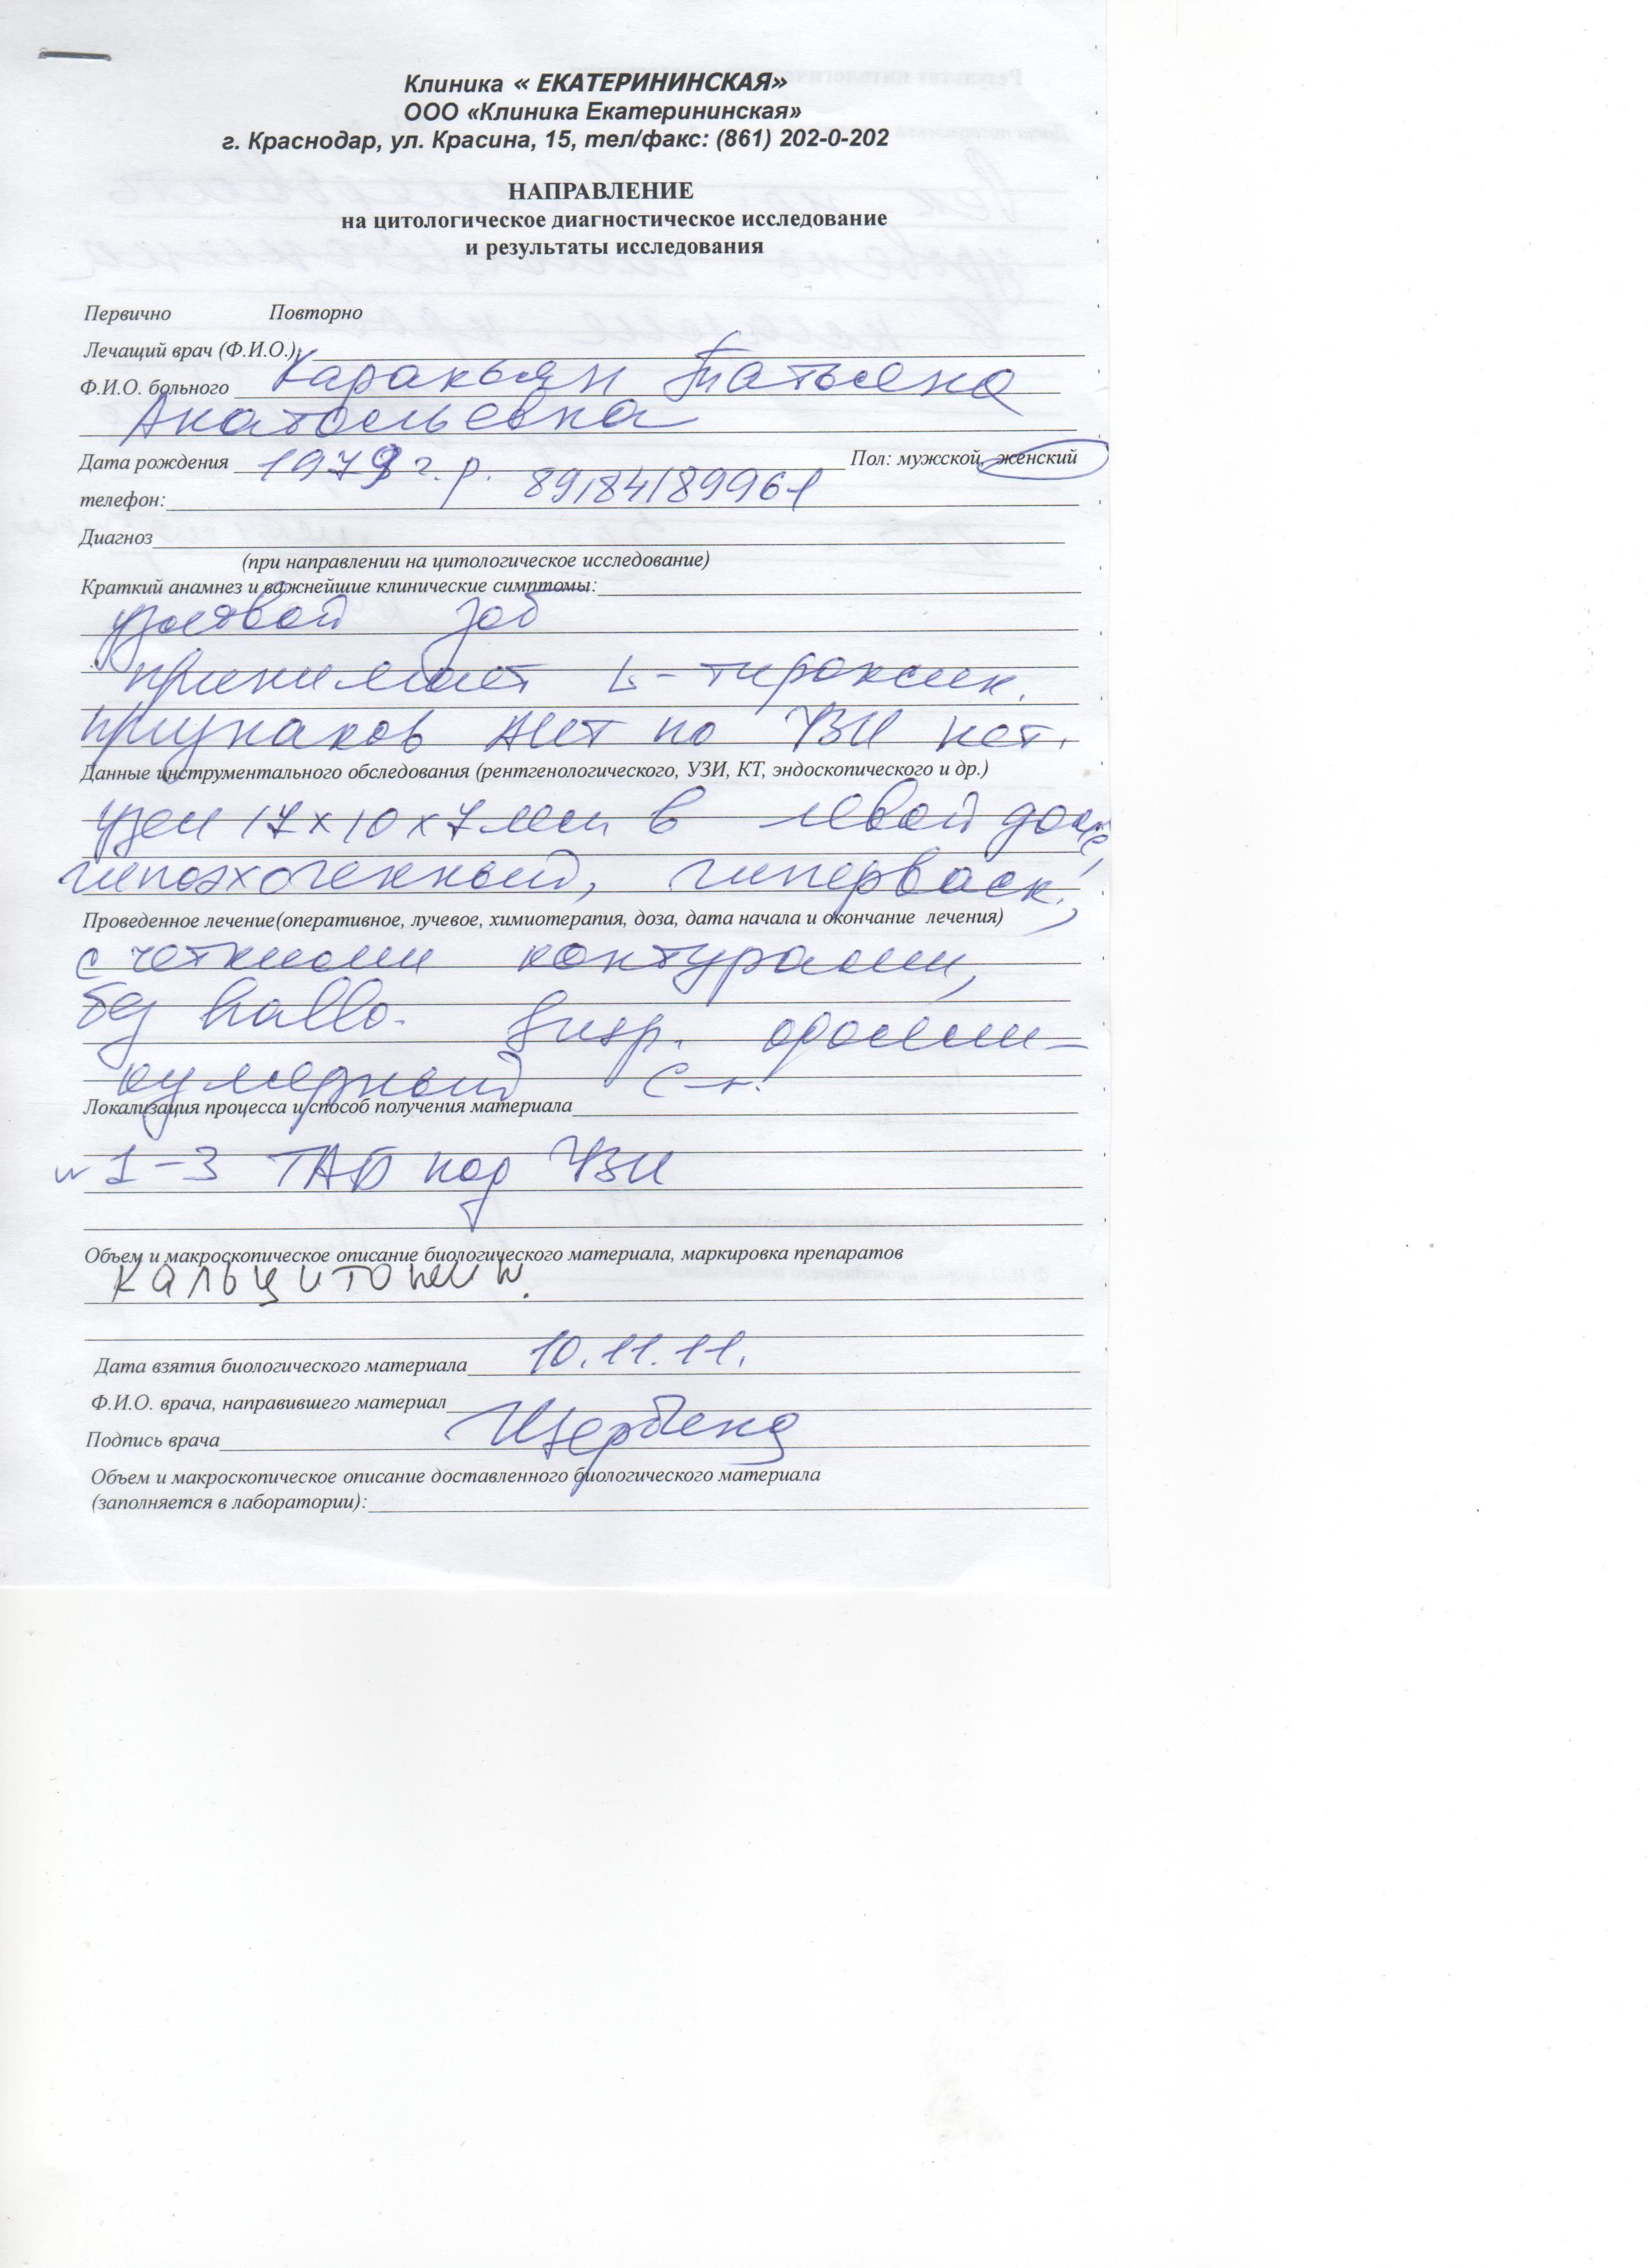 Клиника « ЕКАТЕРИНИНСКАЯ»
ООО «Клиника Екатерининская»
г. Краснодар, ул. Красина, 15, тел/факс: (861) 202-0-202
НАПРАВЛЕНИЕ
на цитологическое диагностическое исследование
и результаты исследования
Первично Повторно
Лечащий врач (Ф.И.О.):
Ф.И.О. больного Каракьян Татьяна
Анатольевна
Дата рождения г.р. Пол: мужской, женский
телефон: 89184189961
Диагноз
(при направлении на цитологическое исследование)
Краткий анамнез и важнейшие клинические симптомы:
узловой зоб
принимает L-тироксин.
признаков АИТ по УЗИ нет.
Данные инструментального обследования (рентгенологического, УЗИ, КТ, эндоскопического и др.)
узел 17х10х7мм в левой доле
гипоэхогенный, гиперваск.,
Проведенное лечение(оперативное, лучевое, химиотерапия, доза, дата начала и окончание лечения)
с четкими контурами,
без hallo. Susp.
с-r.
Локализация процесса и способ получения материала
1-3 ТАБ под УЗИ
Объем и макроскопическое описание биологического материала, маркировка препаратов
кальцитонин.
Дата взятия биологического материала 10.11.11.
Ф.И.О. врача, направившего материал
Подпись врача
Объем и макроскопическое описание доставленного биологического материала
(заполняется в лаборатории):